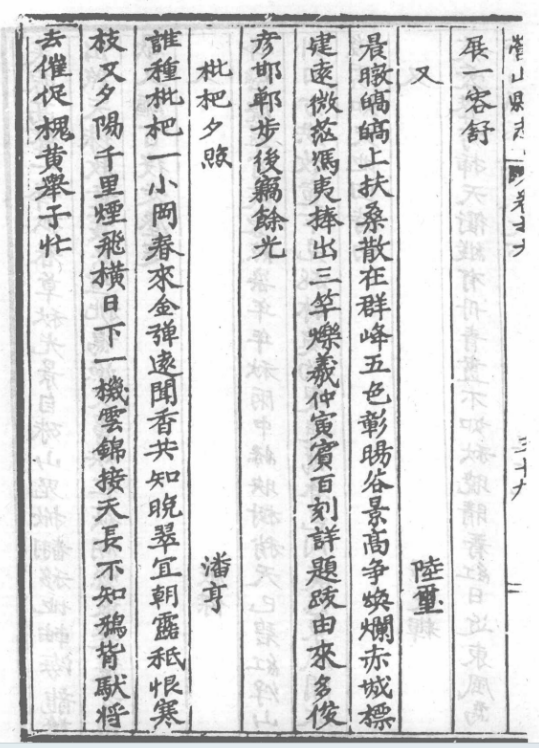 營山縣志
三十九
展一容舒
又 陸璽
晨暾皜皜上扶桑散在群峰五色彰暘谷景高争煥爛赤城標
建遠微茫馮夷捧出三竿爍羲仲寅賓百刻詳題跋由來多俊
彦邯鄲步後竊餘光
枇杷夕照 潘亨
誰種枇杷一小岡春來金彈遠聞香共知晚翠宜朝露秪恨寒
枝又夕陽千里煙飛橫日下一機雲錦接天長不知鴉背馱將
去催促槐黄舉子忙